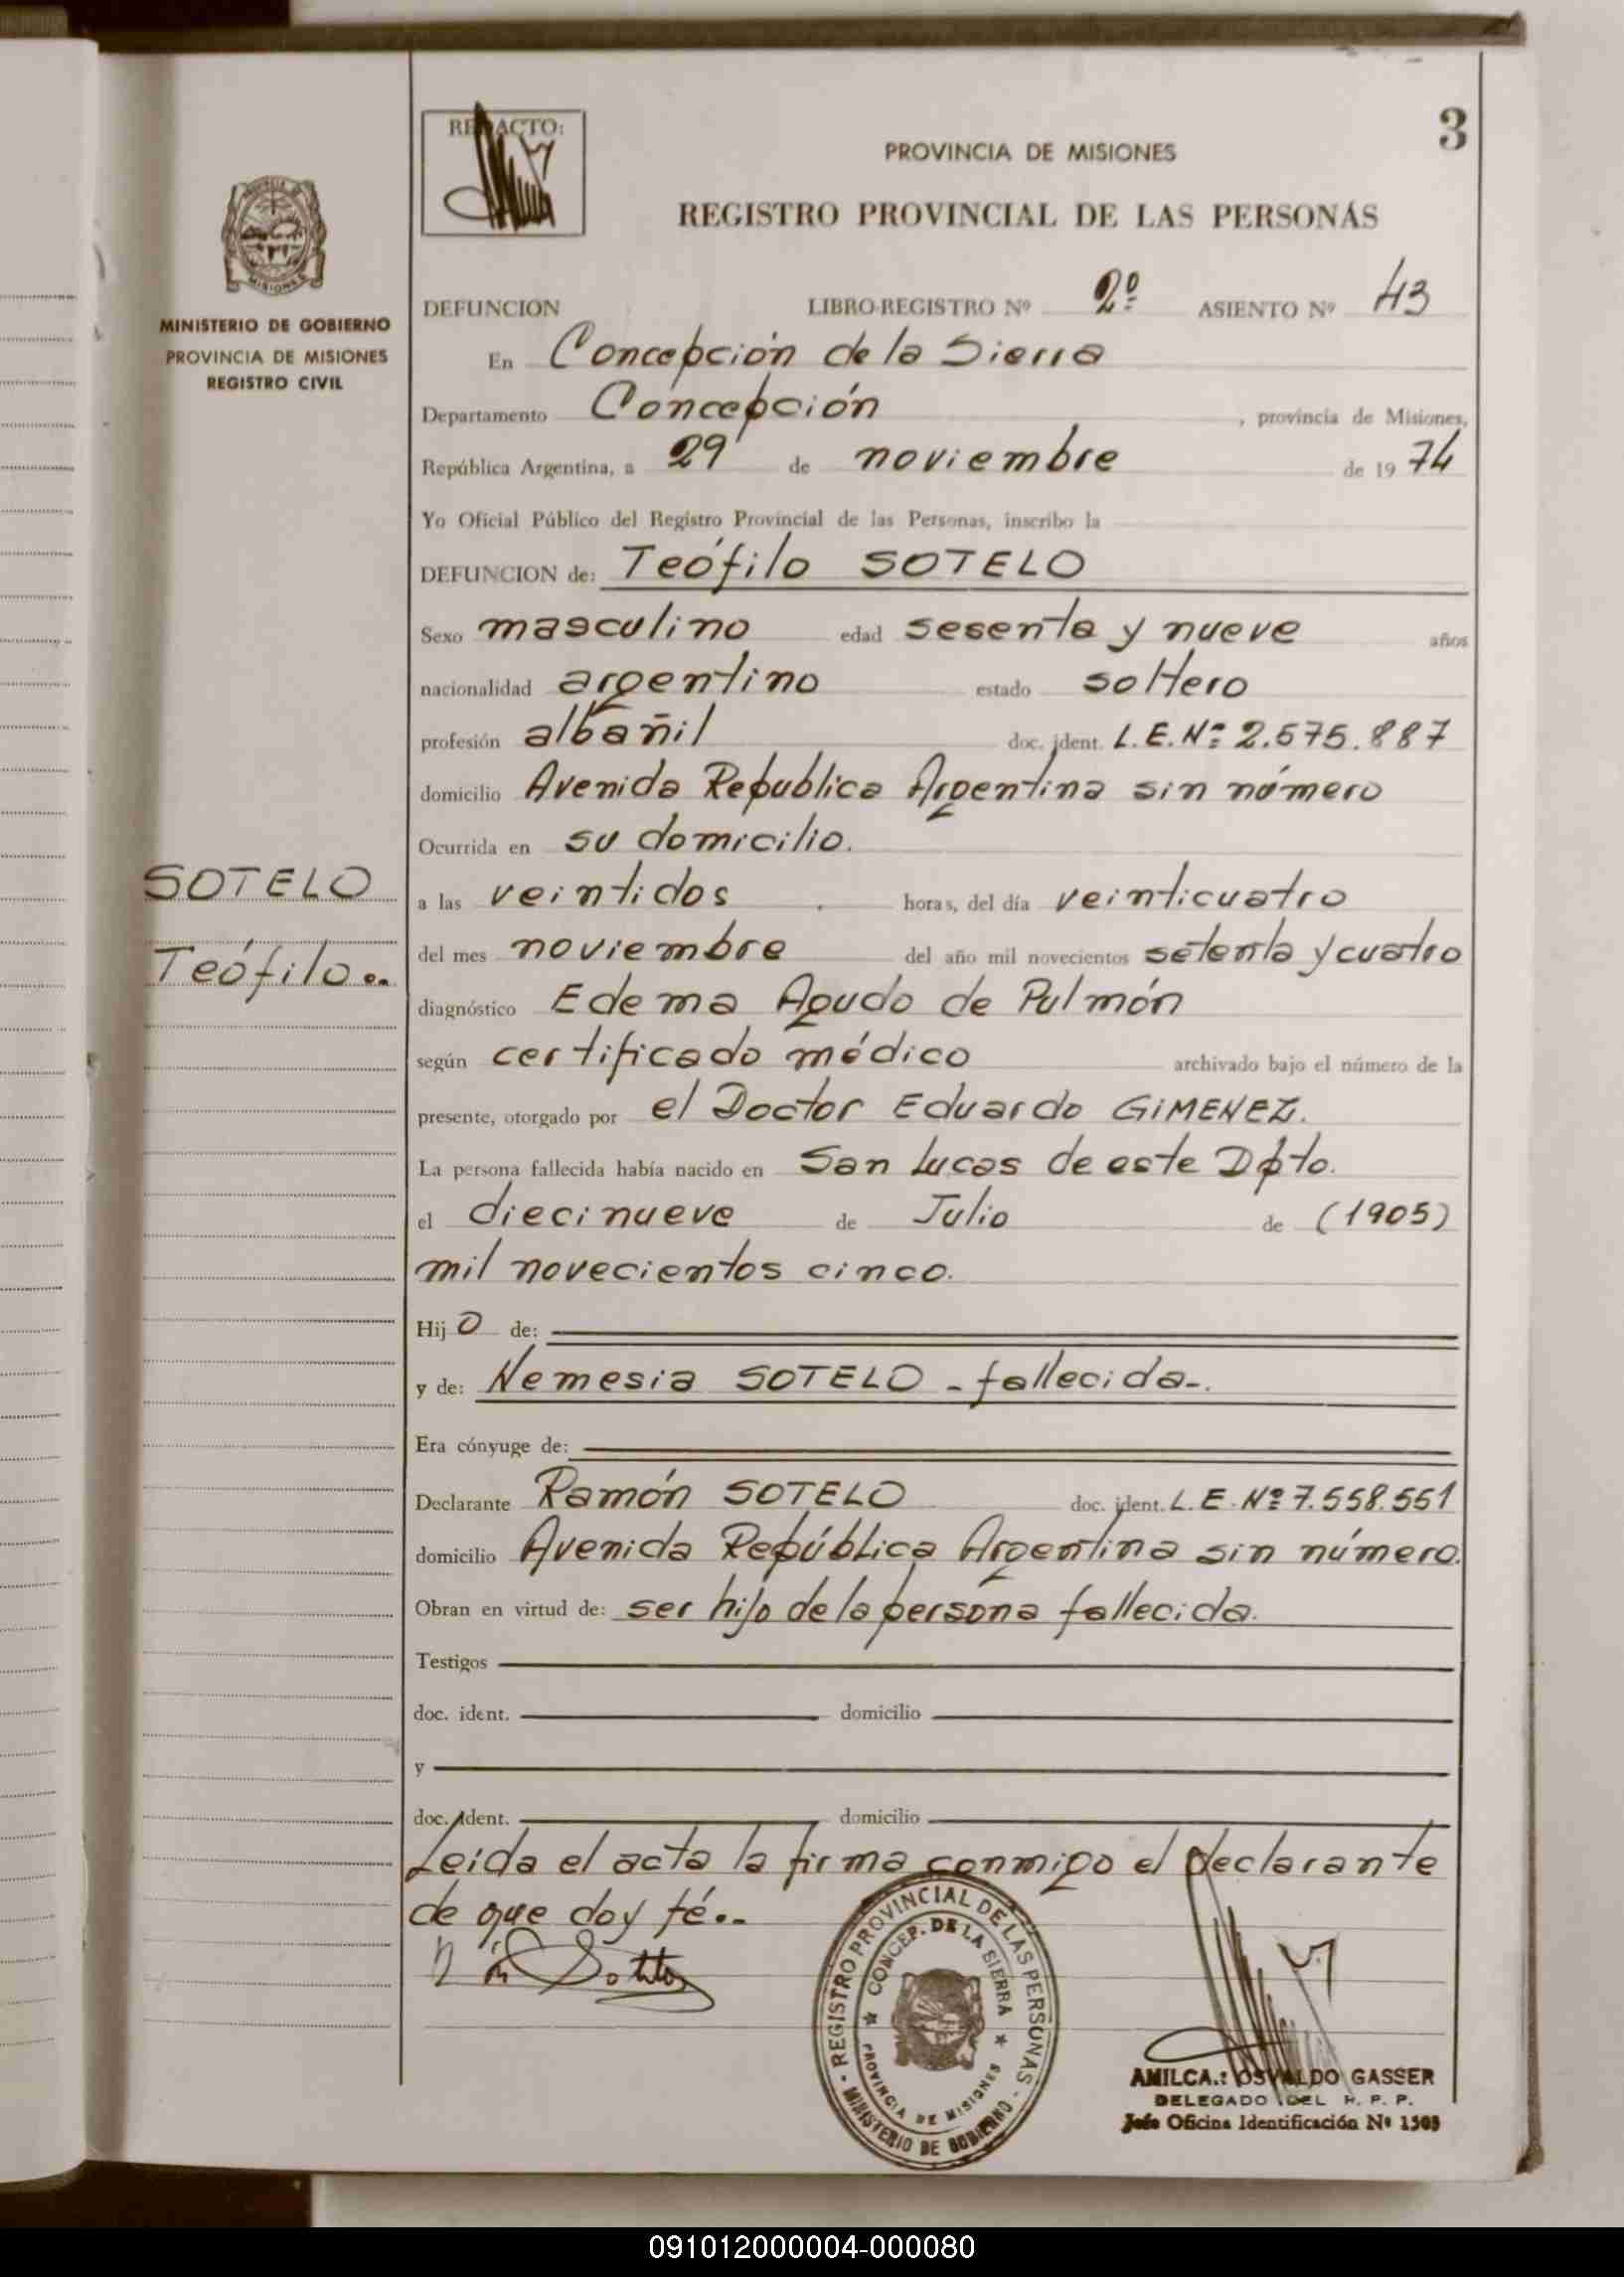 3
REDACTO:
PROVINCIA DE MISIONES
REGISTRO PROVINCIAL DE LAS PERSONAS
MISIONES
MINISTERIO DE GOBIERNO
PROVINCIA DE MISIONES
REGISTRO CIVIL
DEFUNCION LIBRO-REGISTRO Nº 2º ASIENTO Nº 43
En Concepción de la Sierra
Departamento Concepción , provincia de Misiones,
República Argentina, a 29 de noviembre de 19 74
Yo Oficial Público del Registro Provincial de las Personas, inscribo la
DEFUNCION de: Teófilo SOTELO
Sexo masculino edad sesenta y nueve años
nacionalidad argentino estado soltero
profesión albañil doc. ident. L.E.Nº 2.575.887
domicilio Avenida Republica Argentina sin número
Ocurrida en su domicilio.
SOTELO
Teófilo..
a las veintidos horas, del día veinticuatro
del mes noviembre del año mil novecientos setenta y cuatro
diagnóstico Edema Agudo de Pulmón
según certificado médico archivado bajo el número de la
presente, otorgado por el Doctor Eduardo GIMENEZ.
La persona fallecida había nacido en San Lucas de este Dpto.
el diecinueve de Julio de (1905)
mil novecientos cinco.
Hij o de:
y de: Nemesia SOTELO - fallecida-.
Era cónyuge de:
Declarante Ramón SOTELO doc. ident. L.E.Nº 7.558.551
domicilio Avenida República Argentina sin número.
Obran en virtud de: ser hijo de la persona fallecida.
Testigos
doc. ident. domicilio
y
doc. ident. domicilio
Leída el acta la firma conmigo el declarante
de que doy fé..
REGISTRO PROVINCIAL DE LAS PERSONAS
- MINISTERIO DE GOBIERNO -
CONCEP. DE LA SIERRA
PROVINCIA DE MISIONES
AMILCA.: OSVALDO GASSER
DELEGADO DEL R. P. P.
Jefe Oficina Identificación Nº 1505
091012000004-000080